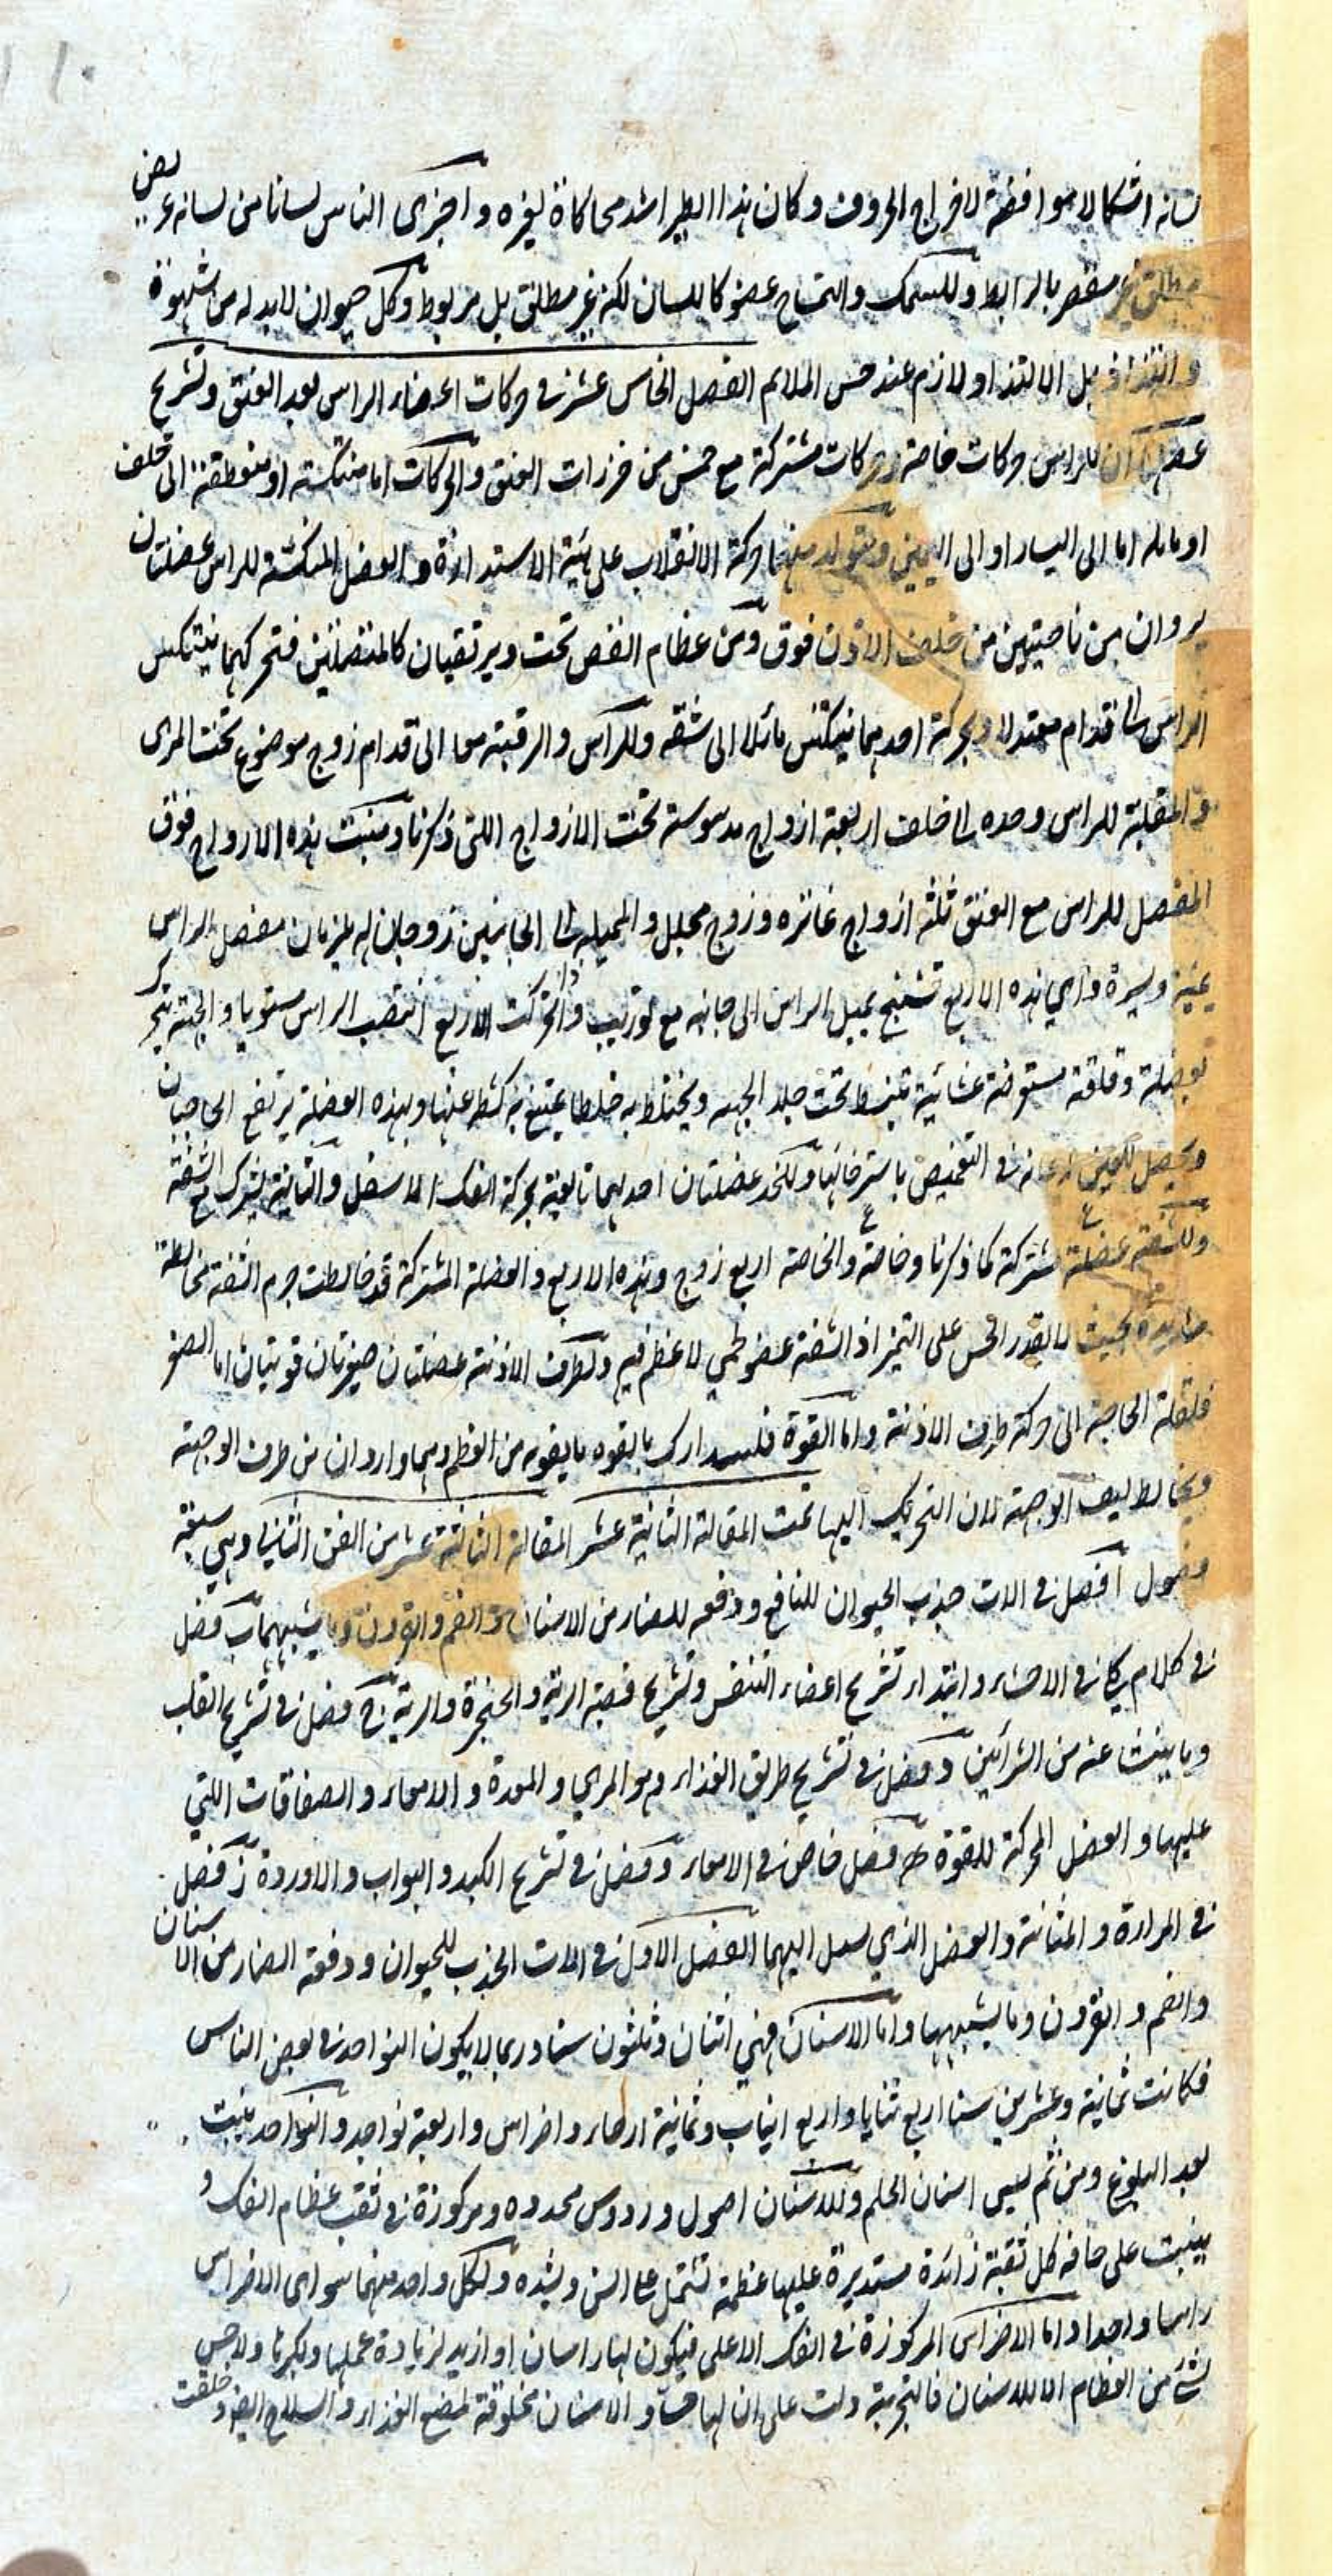 لسانه اشكالا موافقة لاخراج الحروف وكان هذا الطير اشد محاكاة لغيره واجزى الناس لسانا من لسانه عريض
مطلق غير مقصر بالرابط وللسمك والتمساح عضو كاللسان لكنه غير مطلق بل مربوط وكل حيوان لا بد له من شهوة
والتذاذ بل الالتذاذ لازم عند حس الملائم الفصل الخامس عشر في حركات اعضاء الراس بعد العنق وتشريح
عضلها ان للراس حركات خاصة وحركات مشتركة مع خمس من خرزات العنق والحركات اما منتكسة او منعطفة الى خلف
او مايله اما الى اليسار او الى اليمين ويتولد منهما حركة الانقلاب على هيئة الاستدارة والعضل المنكسة للراس عضلتان
يردان من ناحيتين من خلف الاذن فوق ومن عظام القص تحت ويرتقيان كالمتصلتين فتحركهما ينتكس
الراس الى قدام معتدلا وبحركة احدهما ينتكس مائلا الى شقه وللراس والرقبة معا الى قدام زوج موضوع تحت المرى
والمقلبة للراس وحده الى خلف اربعة ازواج مدسوسة تحت الازواج اللتى ذكرنا ومنبت هذه الازواج فوق
المفصل للراس مع العنق ثلثه ازواج غائره وزوج مجلل والمميله الى الجانبين زوجان له يلزمان مفصل الراس
يمنة ويسرة واي هذه الاربع تشنج يميل الراس الى جانبه مع توريب واذا تحركت الاربع انتصب الراس مستويا والجبهة تتحرك
بعضلة دقاقة مستعرضة غشائية تنبسط تحت جلد الجبهه ويختلط به خلطا يمتنع به كشطه عنها وبهذه العضلة يرتفع الحاجبان
ويحصل للعين اعانه في التغميض باسترخائها وللخد عضلتان احدهما تابعة بحركة الفك الاسفل والثانية يشترك مع الشفة
وللشفة عضلة مشتركة كما ذكرنا وخاصة والخاصة اربع زوج وهذه الاربع والعضلة المشتركة قد خالطت جرم الشفة مخالطة
شديدة بحيث لا يقدر الحس على التميز اذ الشفة عضو لحمي لا عظم فيه ولطرف الارنبة عضلتان صغيرتان قويتان اما الصغر
فلقلة الحاجة الى حركة طرف الارنبة واما القوة فليتدارك بالقوه ما يفوته من العظم وهما واردان من طرف الوجنة
ويخالط ليف الوجنة لان التحريك اليها تمت المقالة الثانية عشر المقالة الثالثة عشر من الفن الثاني وهي سبعة
فصول ا فصل في الات جذب الحيوان للنافع ودفعه للضار من الاسنان والفم والقرون وما يشبهها ب فصل
في كلام كلي في الاحشاء وابتداء تشريح اعضاء التنفس وتشريح قصبة الرية والحنجرة والرية ج فصل في تشريح القلب
وما ينبث عنه من الشرائين د فصل في تشريح طريق الغذاء وهو المري والمعدة والامعاء والصفاقات اللتي
عليها والعضل المحركة للقوة ه فصل خاص في الامعاء و فصل في تشريح الكبد والبواب والاوردة ز فصل
في المرارة والمثانة والعضل الذي اليهما الفصل الاول في الات الجذب للحيوان ودفعة الضار من الاسنان
والفم والقرون وما يشبهها واما الاسنان فهي اثنان وثلثون سنا وربما لا يكون النواجذ في بعض الناس
فكانت ثمانية وعشرين سنا اربع ثنايا واربع انياب وثمانية ارحاء واضراس واربعة نواجد والنواجد ينبت
بعد البلوغ ومن ثم ليسمى اسنان الحلم وللاسنان اصول وروس محدده ومركوزة في ثقب عظام الفك و
ينبت على حافه كل ثقبة زائدة مستديرة عليها عظمة تشتمل على السن ويشده ولكل واحد منهما سواى الاضراس
راسا واحدا واما الاضراس المركوزة في الفك الاعلى فيكون لها راسان او ازيد لزيادة عملها وكبرها ولا حس
لشئ من العظام الا للاسنان فالتجربة دلت على ان لها حسا والاسنان مخلوقة لمضغ الغذاء والسلاح ايضا وخلقت